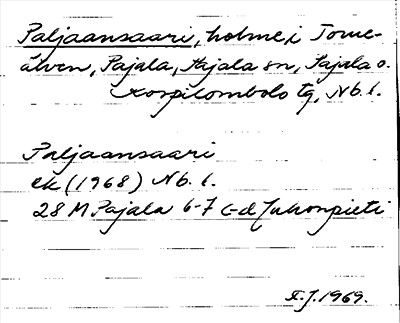 Paljaansaari, holme, i Torne-
älven, Pajala, Pajala sn, Pajala o.
Korpilombolo tg, Nb. l.
Paljaansaari
ek (1968) Nb. l.
28 M Pajala 6-7 c-d Juhonpieti
E.J. 1969.